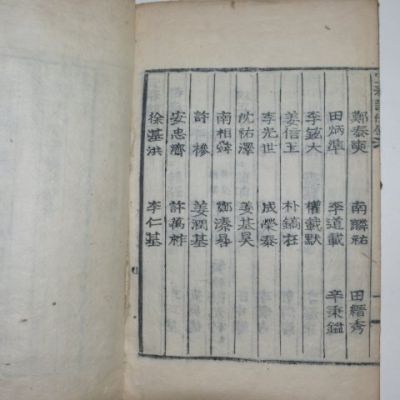 鄭泰奭 南麟祐 田縉秀
田炳準 李道載 辛秉鑑
李鉉大 權載默
姜信王 朴鎬在
李光世 成榮泰
沈祐澤 姜基昊
南相舜 鄭溱昜
許 槮 姜潤基
安忠齋 許萬祚
徐基洪 李仁基